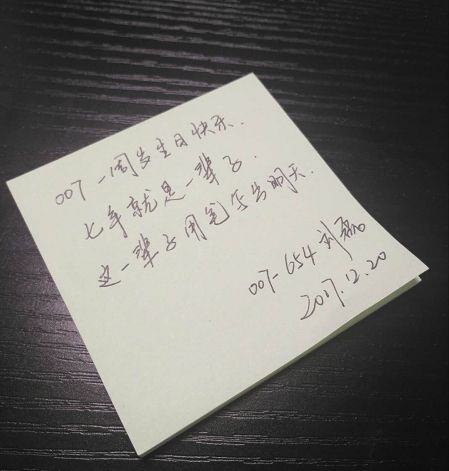 007一周岁生日快乐.
七年就是一辈子.
这一辈子用笔写出明天.
007-654 刘磊
2017.12.20